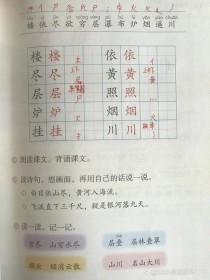 楼 依 尽 欲 穷 层 瀑 布 炉 烟 遥 川
楼 楼 依 依
尽 尽 黄 黄
层 层 照 照
炉 炉 烟 烟
挂 挂 川 川
朗读课文。背诵课文。
读诗句，想画面，再用自己的话说一说。
白日依山尽，黄河入海流。
飞流直下三千尺，疑是银河落九天。
读一读，记一记。
穷尽 山穷水尽 层叠 层林叠翠
烟云 烟消云散 山川 名山大川